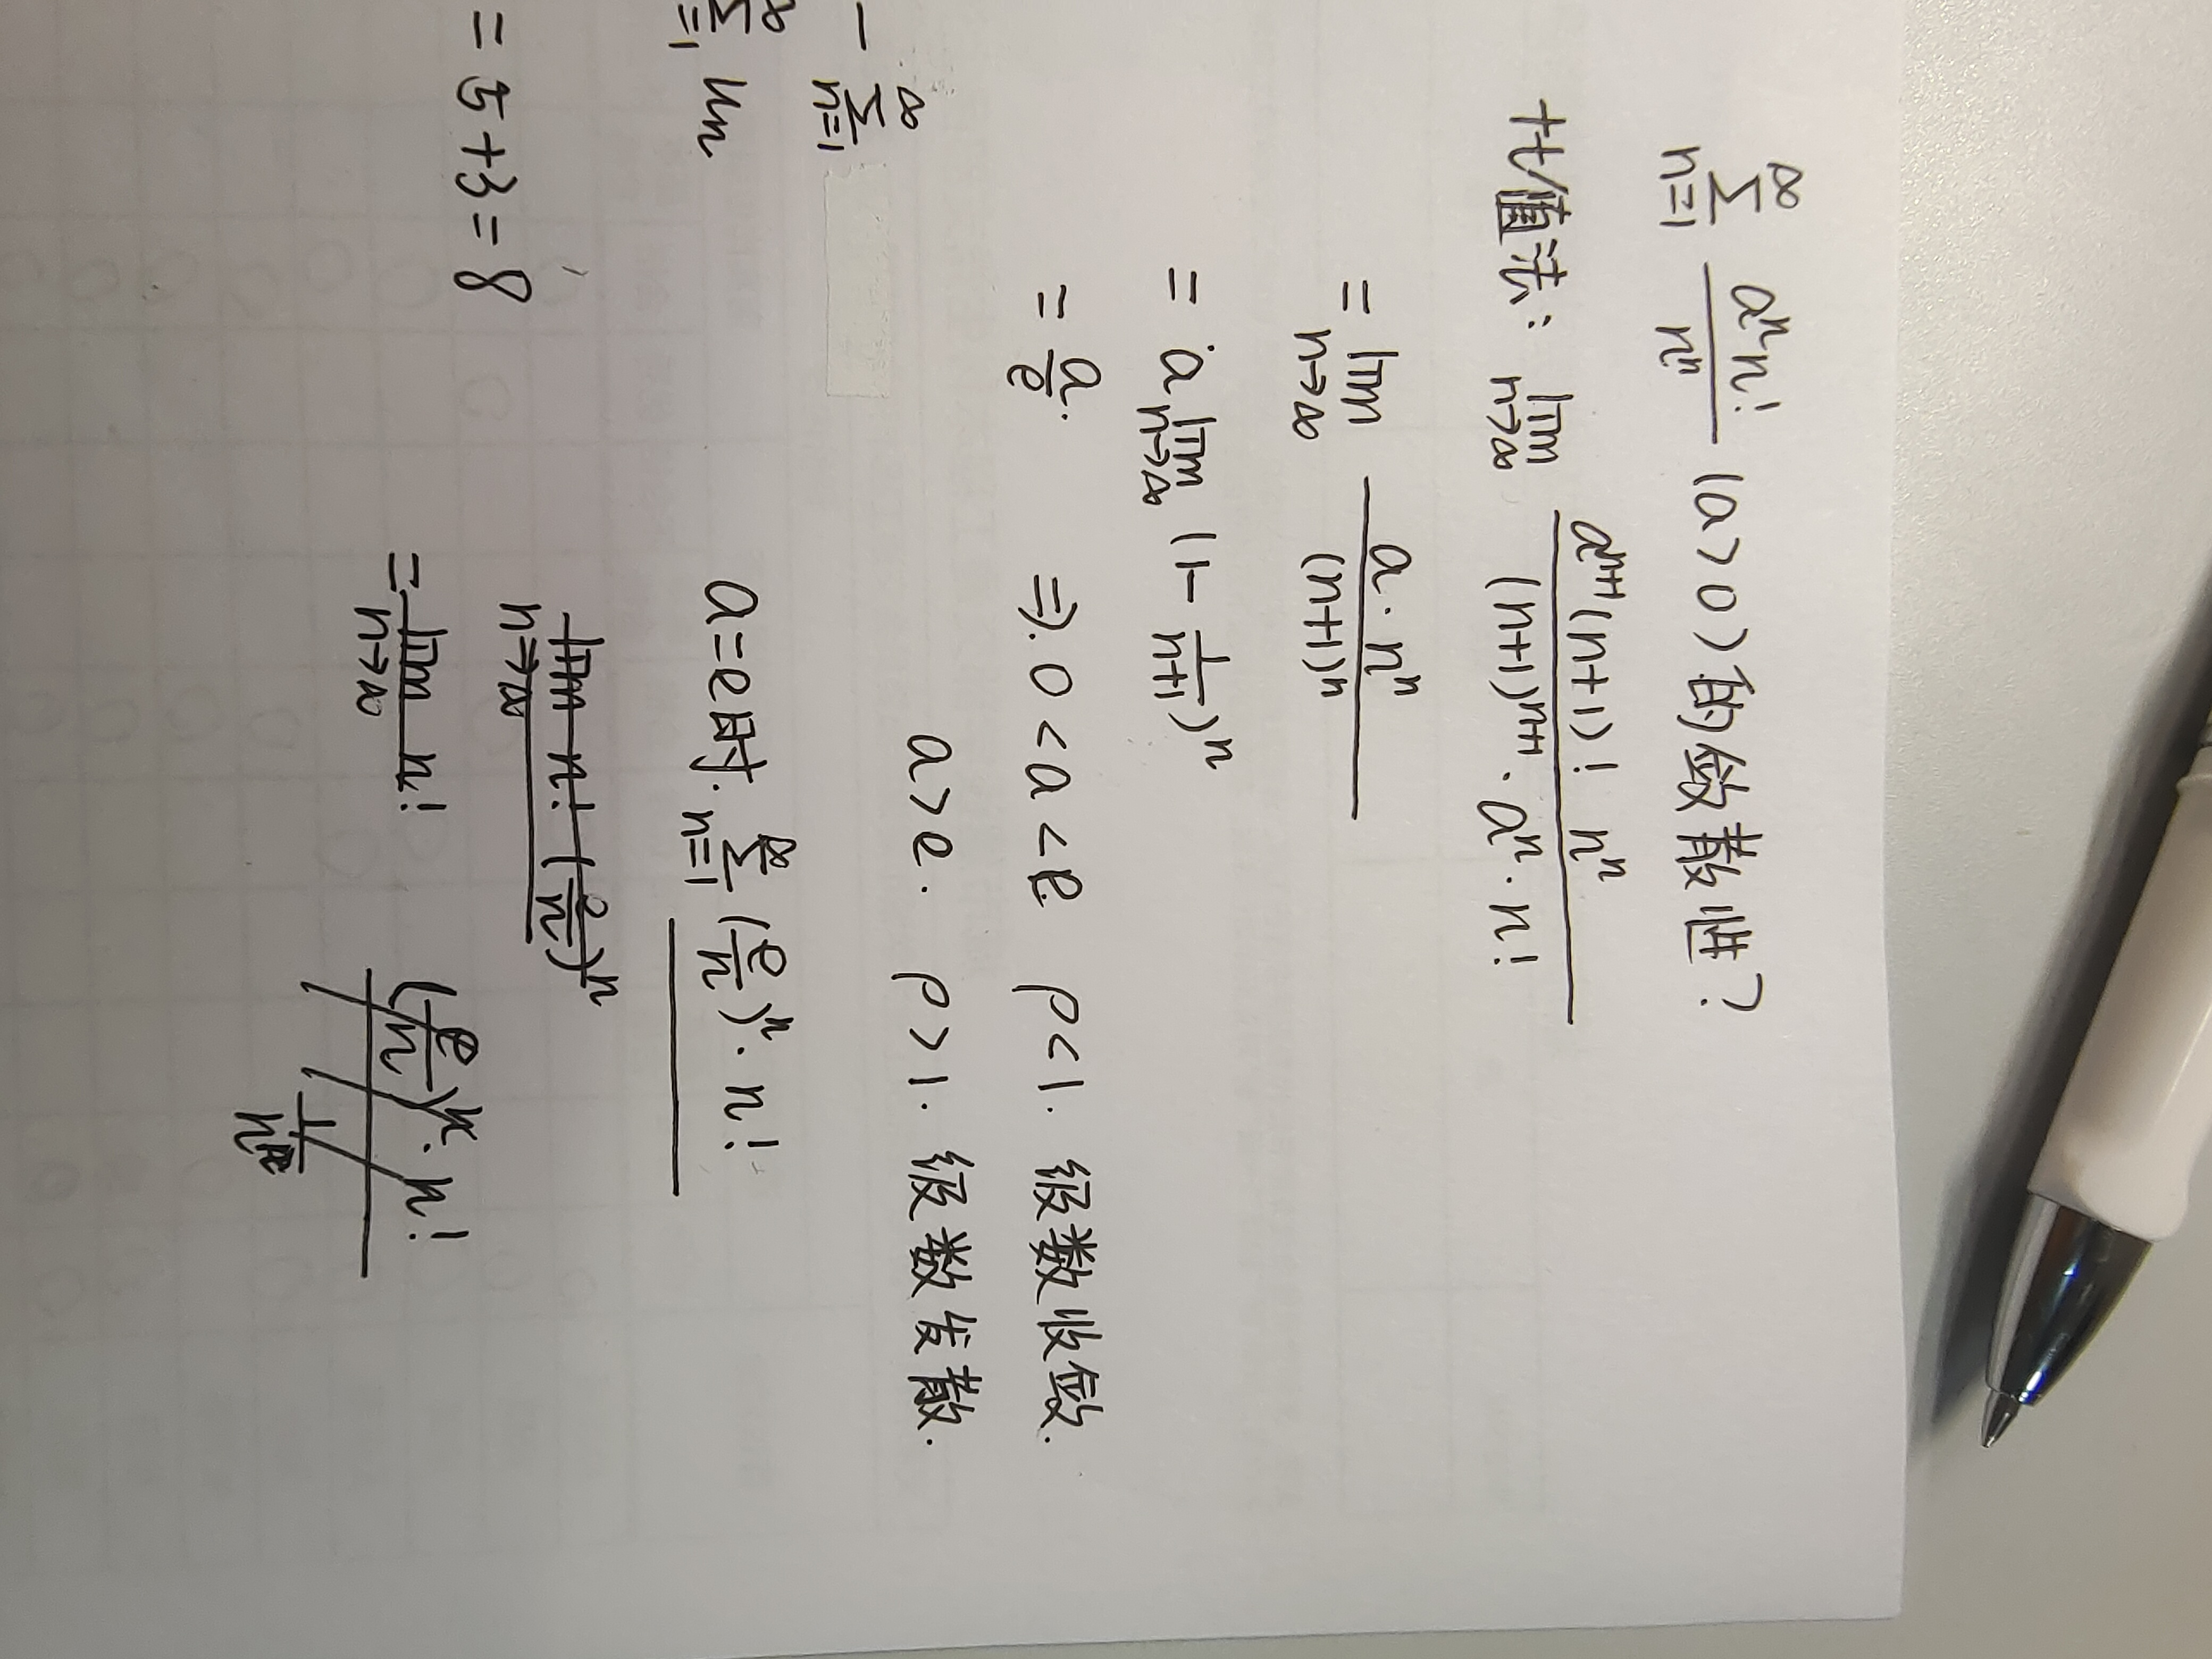 ∑_{n=1}^{∞} aⁿn!/nⁿ (a>0)的敛散性?
比值法: lim_{n→∞} aⁿ⁺¹(n+1)! nⁿ/((n+1)ⁿ⁺¹·aⁿ·n!)
= lim_{n→∞} a·nⁿ/(n+1)ⁿ
= a lim_{n→∞} (1-1/(n+1))ⁿ
= a/e. ⇒. 0<a<e ρ<1. 级数收敛.
a>e. ρ>1. 级数发散.
- ∑_{n=1}^{∞}
a=e时. ∑_{n=1}^{∞} (e/n)ⁿ·n!
∑_{n=1}^{∞} un
lim_{n→∞} n!(e/n)ⁿ
= 5+3=8
= lim_{n→∞} n! (e/n)ⁿ·n!